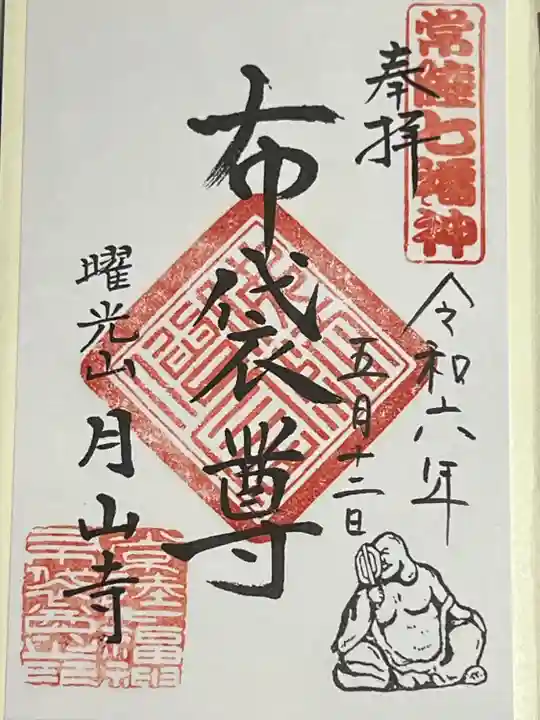 常陸七福神
奉拝
令和六年
五月十二日
布袋尊
曜光山
月山寺